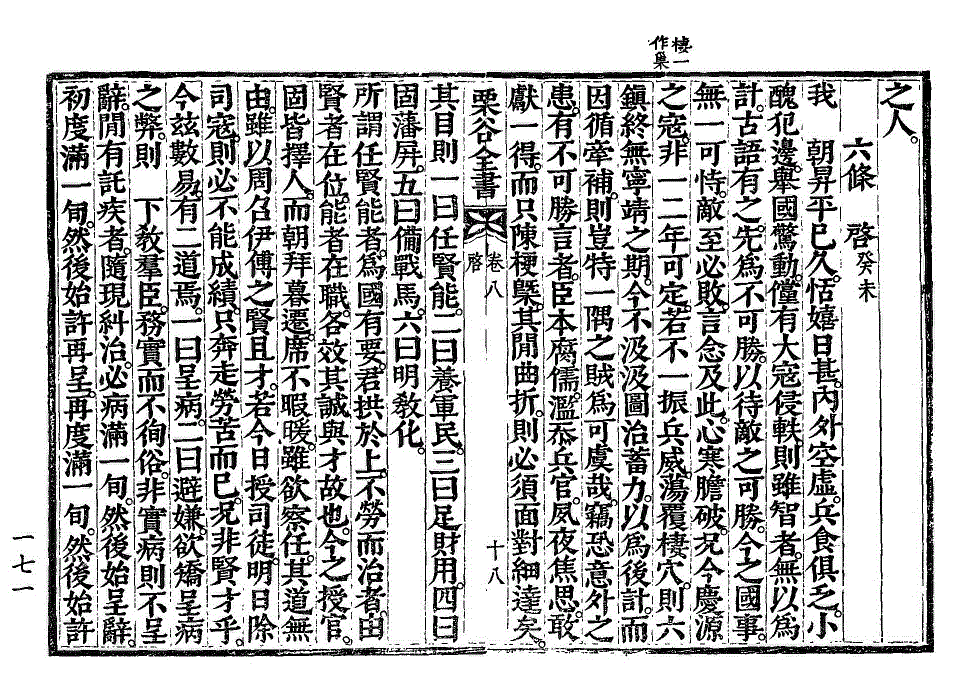 棲一
作巢
之人。
六條　啓癸未
我　朝昇平已久。恬嬉日甚。內外空虛。兵食俱乏。小
醜犯邊。擧國驚動。儻有大寇侵軼。則雖智者。無以爲
計。古語有之。先爲不可勝。以待敵之可勝。今之國事。
無一可恃。敵至必敗。言念及此。心寒膽破。况今慶源
之寇。非一二年可定。若不一振兵威。蕩覆棲穴。則六
鎭終無寧靖之期。今不汲汲圖治蓄力。以爲後計。而
因循牽補。則豈特一隅之賊爲可虞哉。竊恐意外之
患。有不可勝言者。臣本腐儒。濫忝兵官。夙夜焦思。敢
獻一得。而只陳梗槩。其閒曲折。則必須面對細達矣。
栗谷全書　卷八　啓　十八
其目則一曰任賢能。二曰養軍民。三曰足財用。四曰
固藩屛。五曰備戰馬。六曰明敎化。
所謂任賢能者。爲國有要。君拱於上。不勞而治者。由
賢者在位。能者在職。各效其誠與才故也。今之授官。
固皆擇人。而朝拜暮遷。席不暇暖。雖欲察任。其道無
由。雖以周召伊傅之賢且才。若今日授司徒。明日除
司寇。則必不能成績。只奔走勞苦而已。况非賢才乎。
今玆數易。有二道焉。一曰呈病。二曰避嫌。欲矯呈病
之弊。則　下敎羣臣。務實而不徇俗。非實病則不呈
辭。閒有託疾者。隨現糾治。必病滿一旬。然後始呈辭。
初度滿一旬。然後始許再呈。再度滿一旬。然後始許
一七一